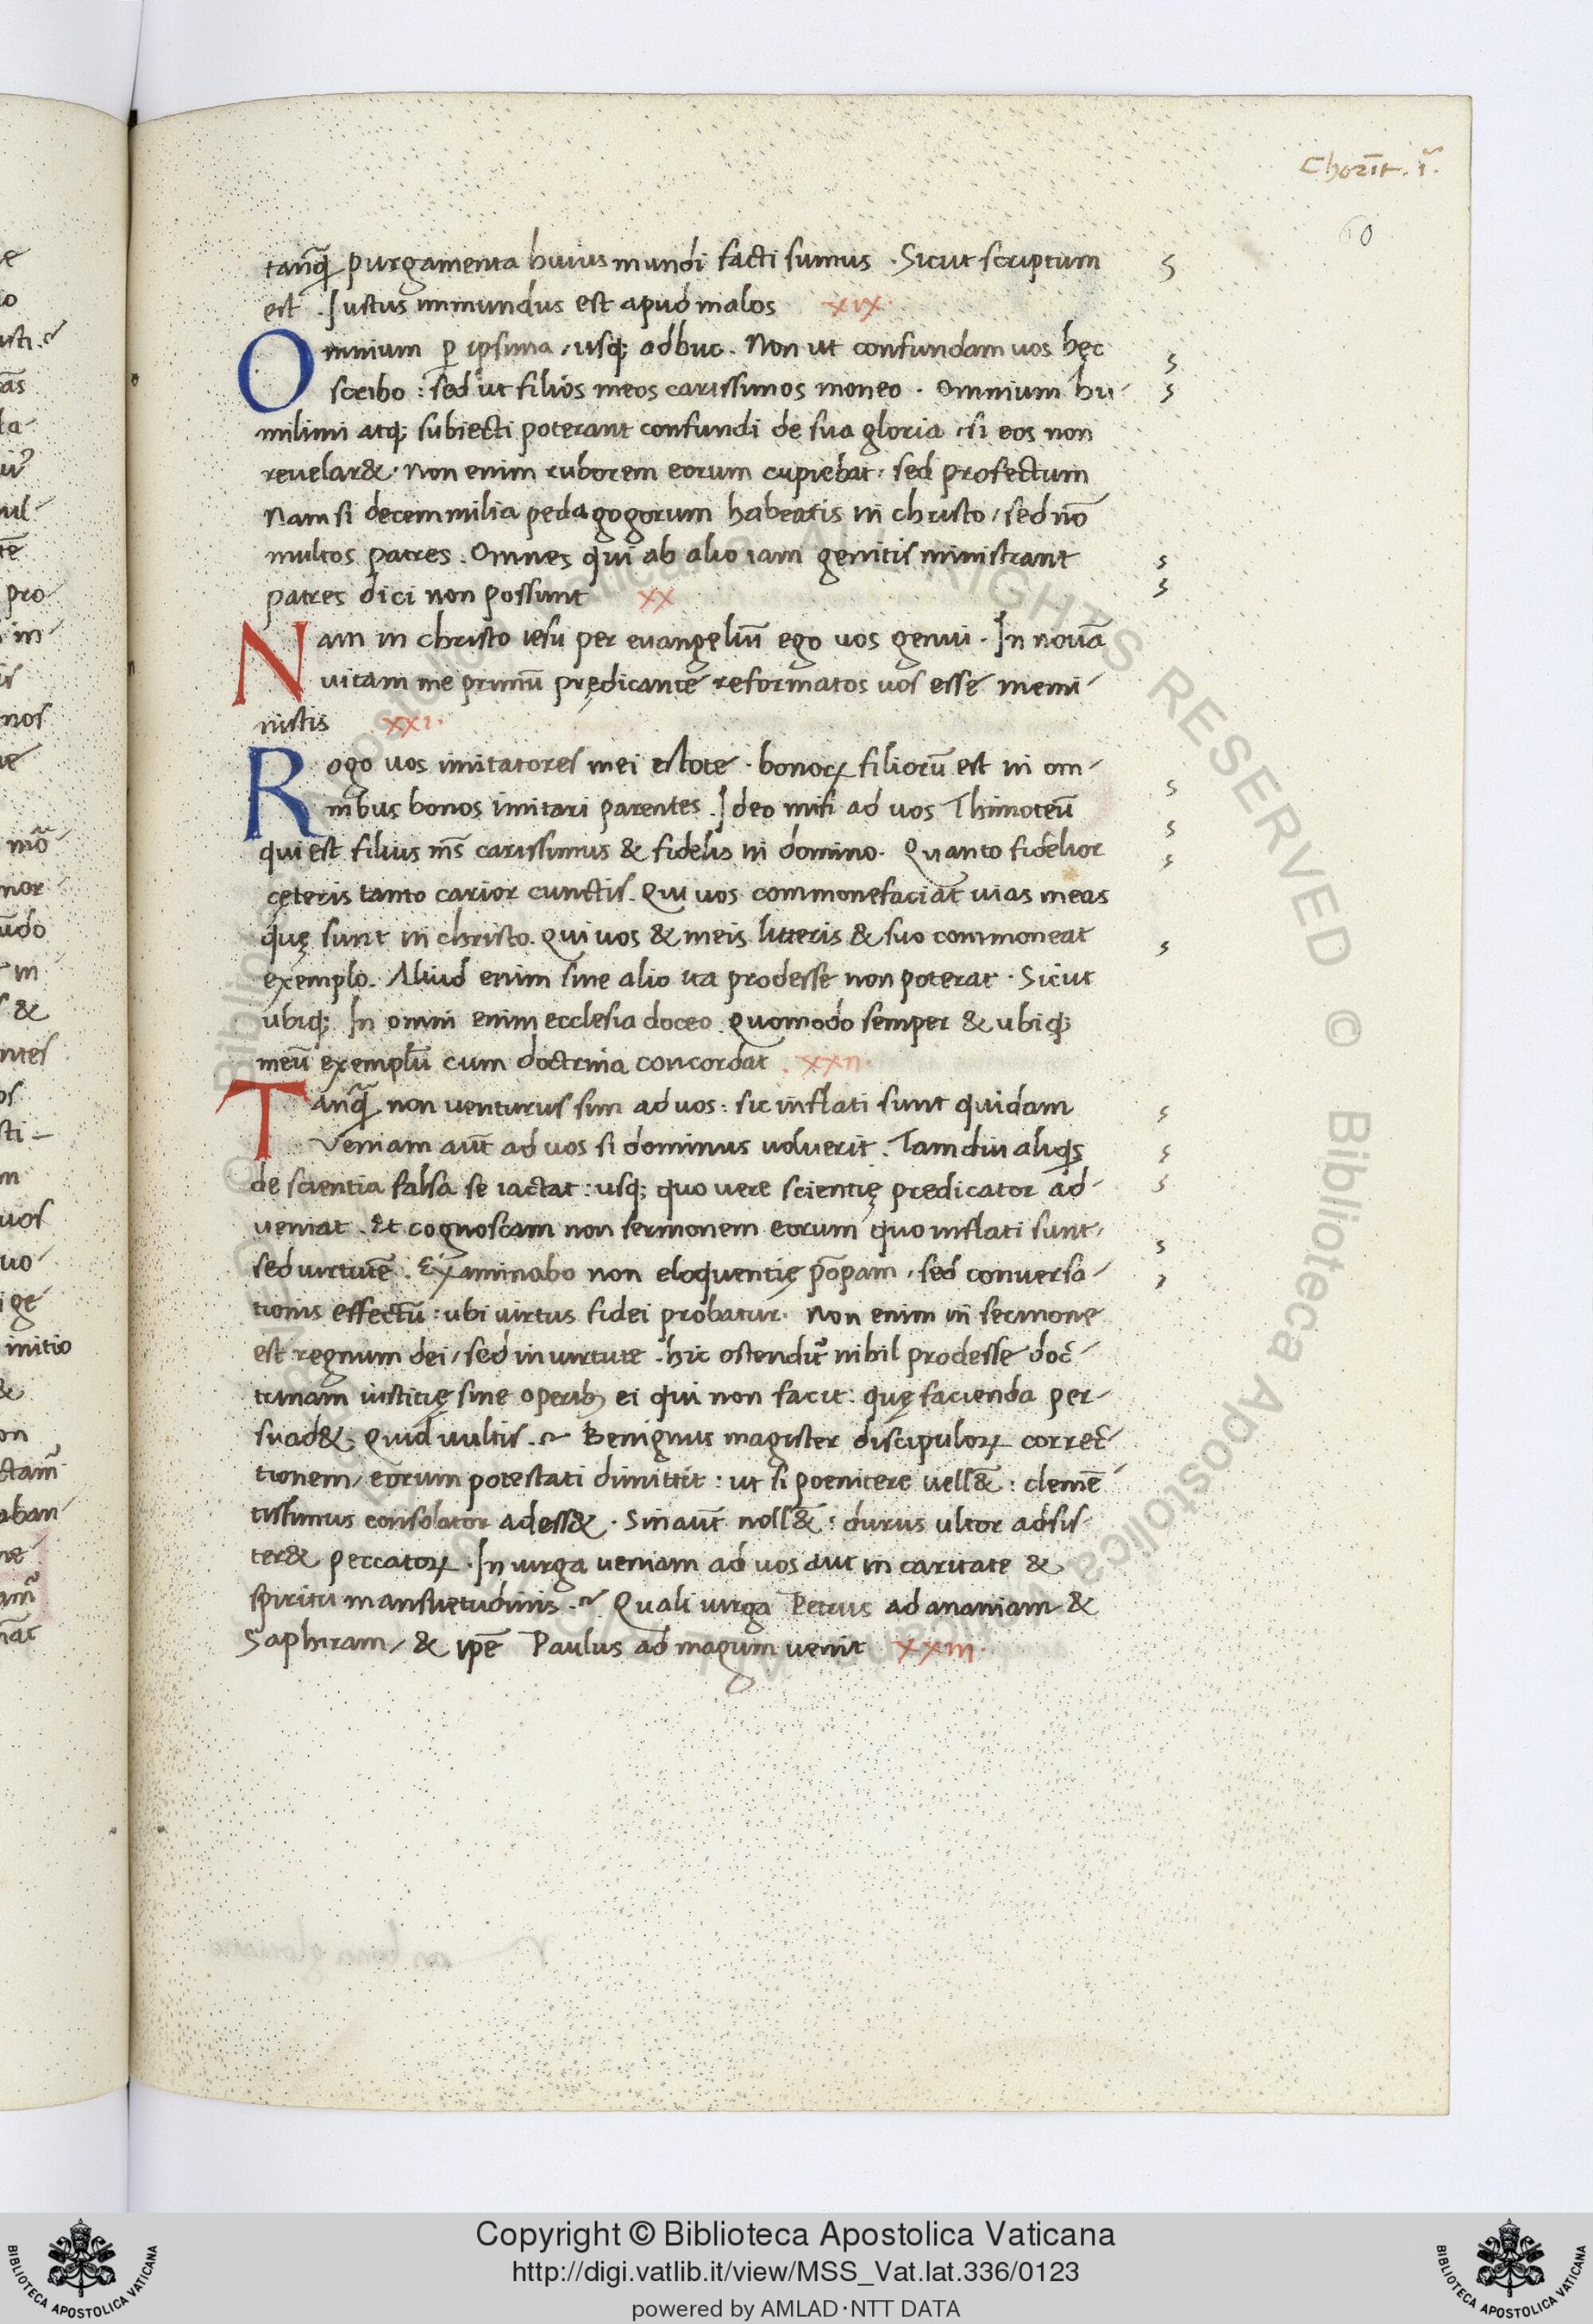 Chorīt. ī.
60
tanq̃ purgamenta huius mundi facti sumus . Sicut scriptum
est . Iustus inmundus est apud malos XIX.
Omnium p̱ ipsima / usq; adhuc . Non ut confundam uos hęc
scribo : sed ut filios meos carissimos moneo . Omnium hu-
milimi atq; subiecti poterant confundi de sua gloria / si eos non
reuelar& . Non enim ruborem eorum cupiebat . sed profectum
Nam si decem milia pedagogorum habeatis in christo / sed nõ
multos patres . Omnes qui ab alio iam genitis ministrant
patres dici non possunt XX
Nam in christo iesu per euangeliũ ego uos genui . In nouã
uitam me primũ prędicantẽ reformatos uos esse memi-
nistis XXI.
Rogo uos imitatores mei estote . bonoꝝ filiorũ est in om-
nibus bonos imitari parentes . Ideo misi ad uos Thimoteũ
qui est filius m̃s carissimus & fidelis in domino . Quanto fidelior
cęteris tanto carior cunctis . Qui uos commonefaciãt uias meas
quę sunt in christo . Qui uos & meis litteris & suo commoneat
exemplo . Aliud enim sine alio ita prodesse non poterat . Sicut
ubiq; In omni enim ecclesia doceo . Quomodo semper & ubiq;
meũ exemplũ cum doctrina concordat . XXII.
Tanq̃ non venturus sim ad uos : sic inflati sunt quidam
Veniam aũt ad uos si dominus uoluerit . Tam diu aliqs
de scientia falsa se iactat : usq; quo uere scientię predicator ad-
ueniat . Et cognoscam non sermonem eorum quo inflati sunt /
sed uirtutẽ . Examinabo non eloquentię põpam / sed conuersa-
tionis effectũ : ubi uirtus fidei probatur . Non enim in sermone
est regnum dei / sed in uirtute . hic ostendit᷑ nihil prodesse doc-
trinam iusticię sine operibꝫ ei qui non facit : quę facienda per-
suad& . Quid uultis .~ Benignus magister discipuloꝝ correc-
tionem / eorum potestati dimittit : ut si poenitere uell& : clemẽ-
tissimus consolator adess& . Sin aũt noll& : durus ultor adsis-
ter& peccatoꝝ . In uirga ueniam ad uos aut in caritate &
spiritu mansuetudinis .~ Quali uirga Petrus ad ananiam &
Saphiram / & ipẽ Paulus ad magum uenit XXIII.
Copyright © Biblioteca Apostolica Vaticana
http://digi.vatlib.it/view/MSS_Vat.lat.336/0123
powered by AMLAD·NTT DATA